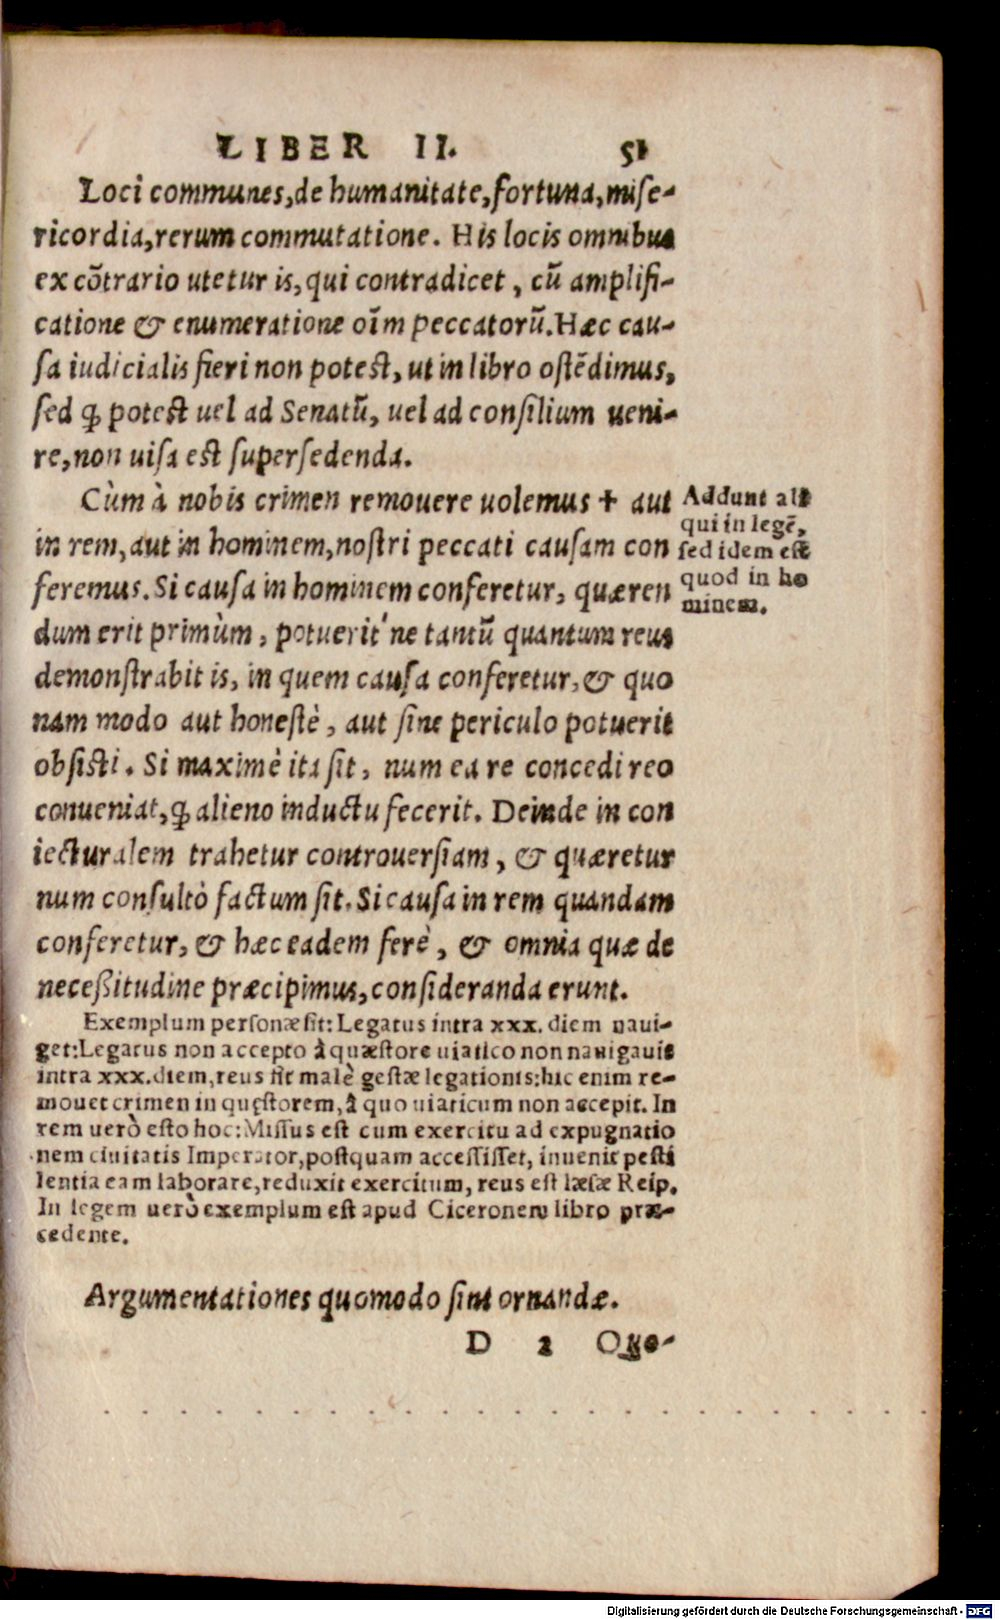 LIBER II. 51
Loci communes, de humanitate, fortuna, mise-
ricordia, rerum commutatione. His locis omnibus
ex cõtrario utetur is, qui contradicet, cũ amplifi-
catione & enumeratione oĩm peccatorũ. Hæc cau-
sa iudicialis fieri non potest, ut in libro ostẽdimus,
sed ꝙ potest uel ad Senatũ, uel ad consilium ueni-
re, non uisa est supersedenda.
Cùm à nobis crimen remouere uolemus + aut
in rem, aut in hominem, nostri peccati causam con
feremus. Si causa in hominem conferetur, quæren
dum erit primùm, potuerit'ne tantũ quantum reus
demonstrabit is, in quem causa conferetur, & quo
nam modo aut honestè, aut sine periculo potuerit
obsisti. Si maximè ita sit, num ea re concedi reo
conueniat, ꝙ alieno inductu fecerit. Deinde in con
iecturalem trahetur controuersiam, & quæretur
num consultò factum sit. Si causa in rem quandam
conferetur, & hæc eadem ferè, & omnia quæ de
neceßitudine præcipimus, consideranda erunt.
Addunt ali
qui in legẽ,
sed idem est
quod in ho
minem.
Exemplum personæ sit: Legatus intra xxx. diem naui-
get: Legatus non accepto à quæstore uiatico non nauigauit
intra xxx. diem, reus fit malè gestæ legationis: hic enim re-
mouet crimen in quęstorem, à quo uiaticum non accepit. In
rem uerò esto hoc: Missus est cum exercitu ad expugnatio
nem ciuitatis Imperator, postquam accessisset, inuenit pesti
lentia eam laborare, reduxit exercitum, reus est læsæ Reip.
In legem uerò exemplum est apud Ciceronem libro præ-
cedente.
Argumentationes quomodo sint ornandæ.
D 2 Quo-
Digitalisierung gefördert durch die Deutsche Forschungsgemeinschaft - DFG